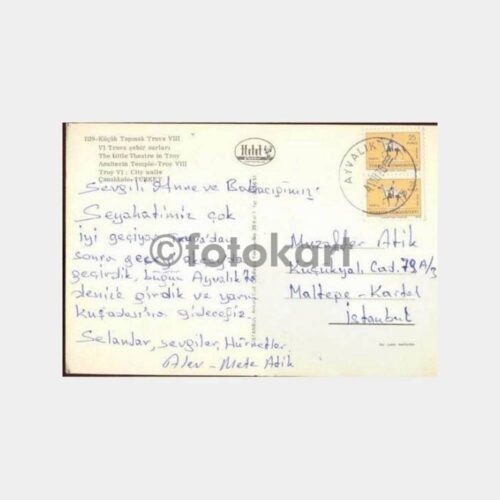 1129-Küçük Tapınak Truva VIII
VI Truva şehir surları
The little Theatre in Troy
Troy VI : City walls
Çanakkale-TURKEY
AYVALIK
25
Sevgili Anne ve Babacığımız;
Seyahatimiz çok
iyi geçiyor
sonra geceyi
geçirdik, bugün Ayvalık'ta
denize girdik ve yarın
Kuşadası'na gideceğiz.
Selamlar, sevgiler, Hürmetler,
Alev - Mete Atik
©fotokart
Muzaffer Atik
Küçükyalı Cad. 79A/3
Maltepe-Kartal
İstanbul